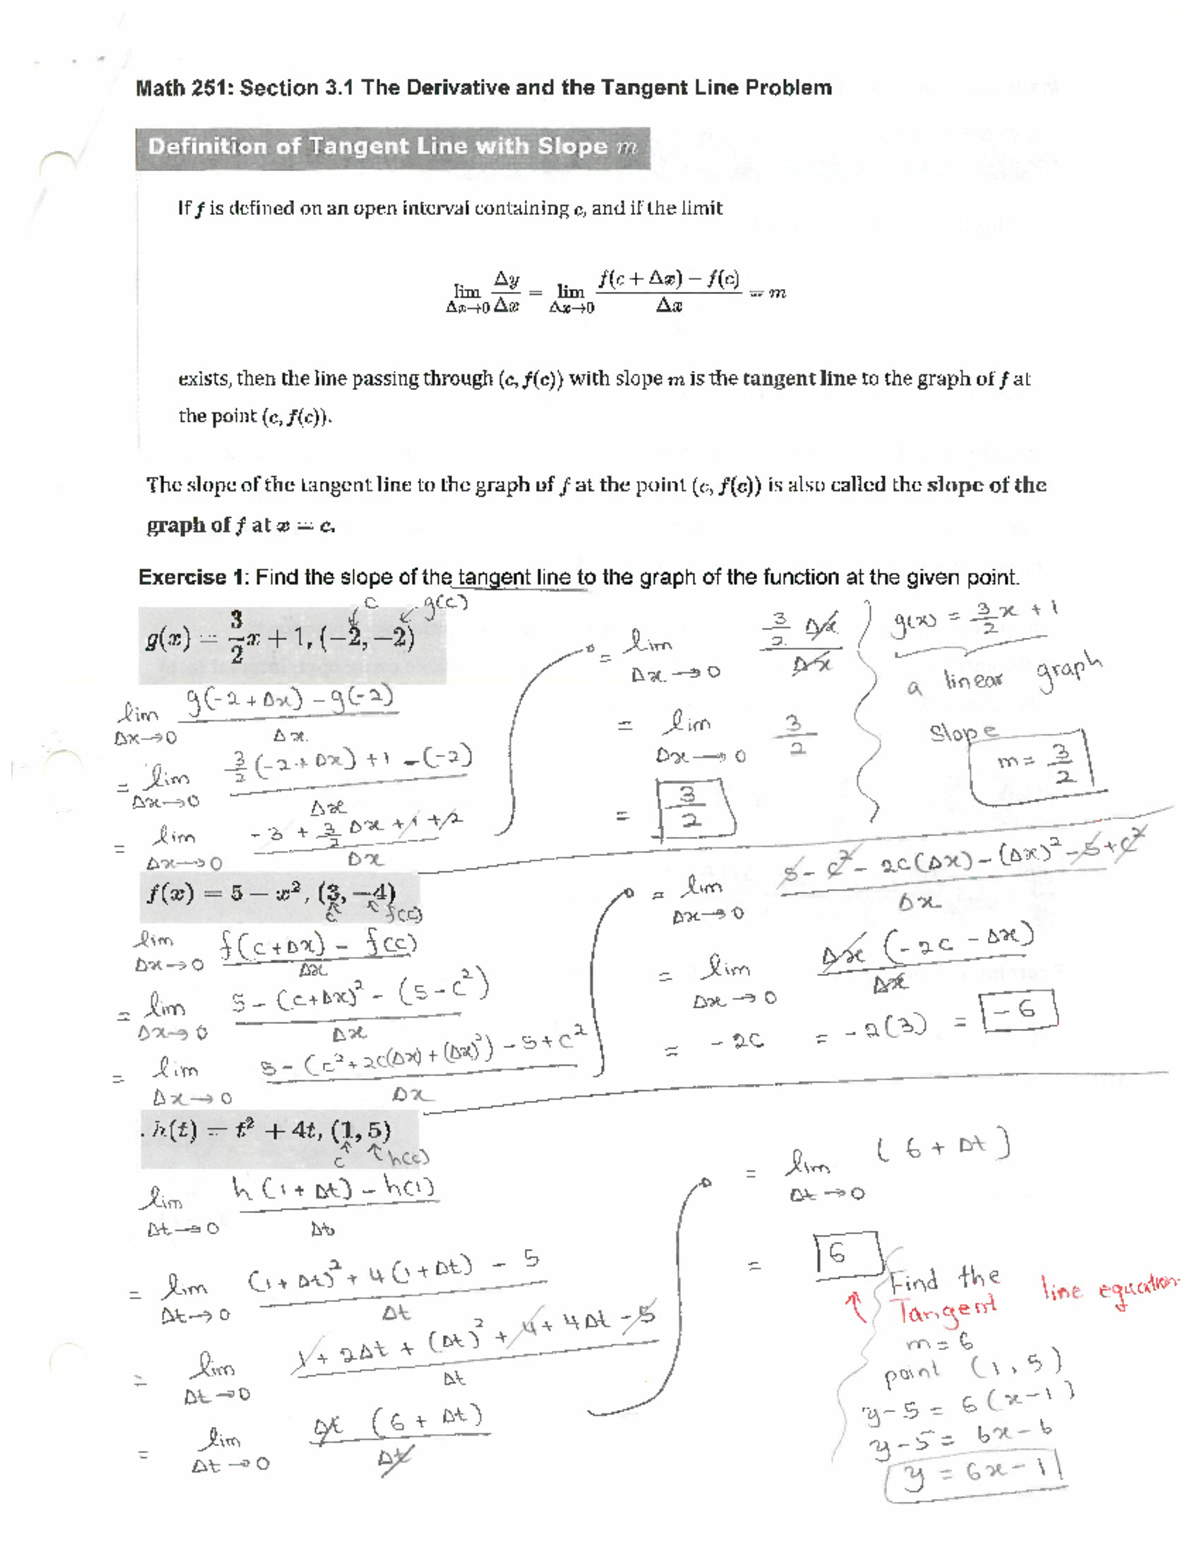 Math 251: Section 3.1 The Derivative and the Tangent Line Problem
Definition of Tangent Line with Slope m
If f is defined on an open interval containing c, and if the limit
lim Δx→0 Δy/Δx = lim Δx→0 (f(c + Δx) − f(c))/Δx = m
exists, then the line passing through (c, f(c)) with slope m is the tangent line to the graph of f at
the point (c, f(c)).
The slope of the tangent line to the graph of f at the point (c, f(c)) is also called the slope of the
graph of f at x = c.
Exercise 1: Find the slope of the tangent line to the graph of the function at the given point.
c g(c)
g(x) = 3/2 x + 1, (−2, −2)
lim Δx→0 (g(-2+Δx) - g(-2))/Δx
= lim Δx→0 (3/2(-2+Δx) + 1 - (-2))/Δx
= lim Δx→0 (-3 + 3/2 Δx + 1 + 2)/Δx
= lim Δx→0 (3/2 Δx)/Δx
= lim Δx→0 3/2
= 3/2
g(x) = 3/2 x + 1
a linear graph
Slope
m = 3/2
f(x) = 5 − x², (3, −4)
c f(c)
lim Δx→0 (f(c+Δx) - f(c))/Δx
= lim Δx→0 (5 - (c+Δx)² - (5 - c²))/Δx
= lim Δx→0 (5 - (c² + 2c(Δx) + (Δx)²) - 5 + c²)/Δx
= lim Δx→0 (5 - c² - 2c(Δx) - (Δx)² - 5 + c²)/Δx
= lim Δx→0 (Δx (-2c - Δx))/Δx
= -2c = -2(3) = -6
h(t) = t² + 4t, (1, 5)
c h(c)
lim Δt→0 (h(1+Δt) - h(1))/Δt
= lim Δt→0 ((1+Δt)² + 4(1+Δt) - 5)/Δt
= lim Δt→0 (1 + 2Δt + (Δt)² + 4 + 4Δt - 5)/Δt
= lim Δt→0 (Δt (6 + Δt))/Δt
= lim Δt→0 (6 + Δt)
= 6
Find the
Tangent line equation
m = 6
point (1, 5)
y - 5 = 6(x - 1)
y - 5 = 6x - 6
y = 6x - 1